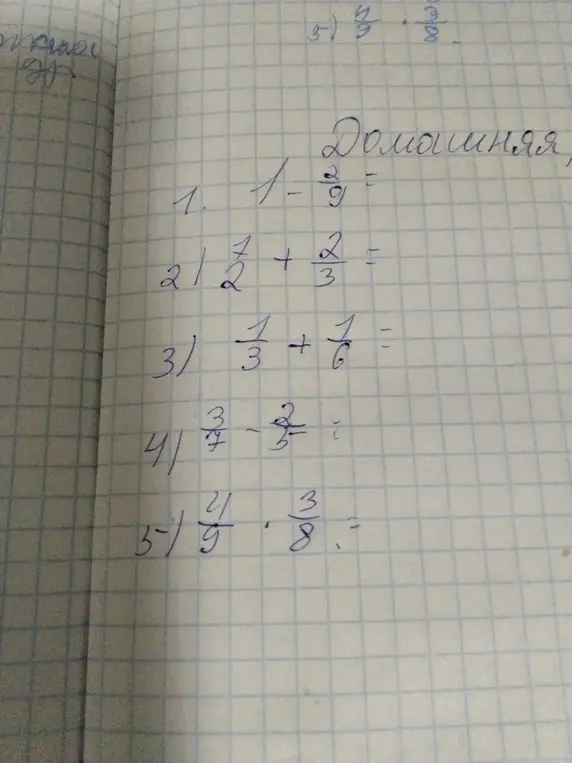 5) 4/9 · 3/8.
Домашняя
1. 1 - 2/9 =
2) 1/2 + 2/3 =
3) 1/3 + 1/6 =
4) 3/7 - 2/5 =
5) 4/9 · 3/8. =